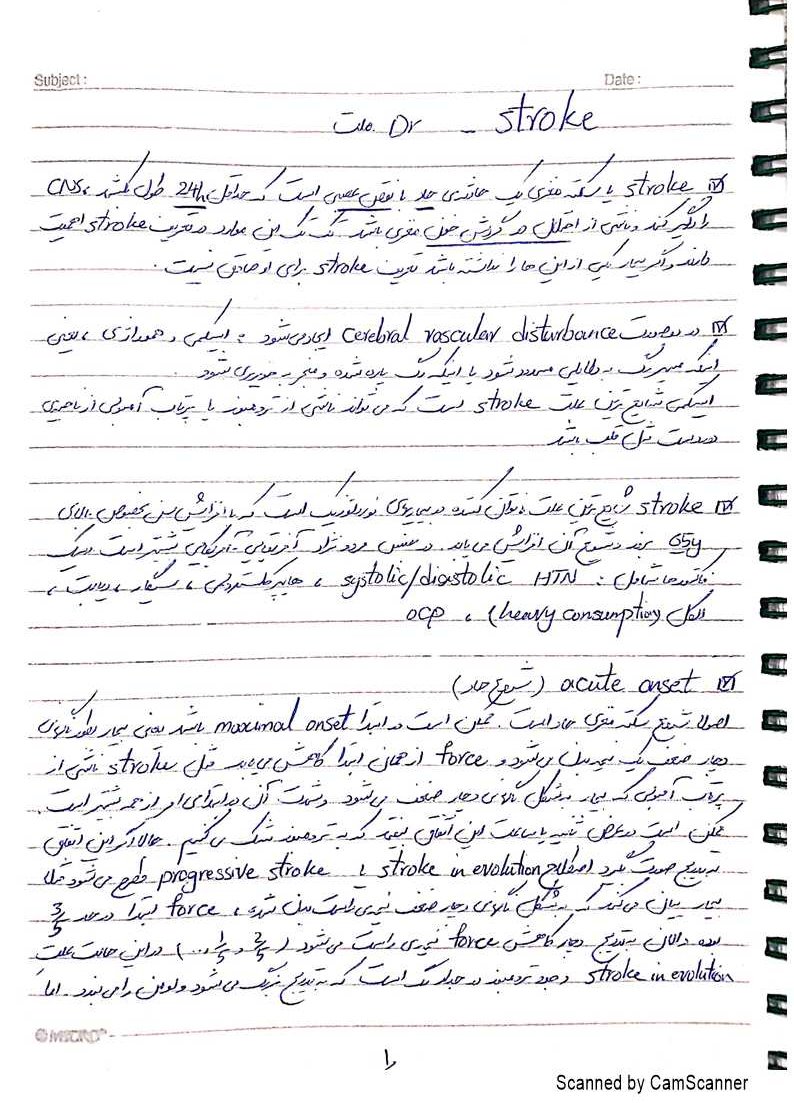 Subject: Date:
stroke - Dr ملت
stroke یا سکته مغزی یک حادثه‌ی حاد با نقص عصبی است که حداقل 24h طول بکشد، CNS
را درگیر کند و ناشی از اختلال در گردش خون مغزی باشد. تک تک این موارد در تعریف stroke اهمیت
دارند و اگر بیمار یکی از این ها را نداشته باشد تعریف stroke برای او صادق نیست.
در دو صورت cerebral vascular disturbance ایجاد می‌شود: ایسکمی و هموراژی، یعنی
اینکه مسیر رگ به دلایلی مسدود شود یا اینکه رگ پاره شده و منجر به خونریزی شود.
ایسکمی شایع ترین علت stroke است که می‌تواند ناشی از ترومبوز یا پرتاب آمبولی از ناحیه‌ی
دوردست مثل قلب باشد
stroke شایع ترین علت ناتوان کننده در بیماریهای نورولوژیک است که با افزایش سن بخصوص بالای
65y روند و شیوع آن افزایش می‌یابد. در جنس مرد و نژاد آفریقایی-آمریکایی بیشتر است. ریسک
فاکتورها شامل: systolic/diastolic HTN، هایپرکلسترولمی، سیگار، دیابت،
الکل (heavy consumption)، OCP
acute onset (شروع حاد)
اصولا شروع سکته مغزی حاد است. ممکن است در ابتدا maximal onset باشد یعنی بیمار بطور ناگهانی
دچار ضعف یک نیمه بدن می‌شود و force از همان ابتدا کاهش می‌یابد مثل stroke ناشی از
پرتاب آمبولی که بیمار به شکل ناگهانی دچار ضعف می‌شود و شدت آن در ابتدای امر از همه بیشتر است.
ممکن است در عرض ثانیه یا ساعت این اتفاق بیفتد که به ترومبوز شک می‌کنیم. حالا اگر این اتفاق
به تدریج صورت بگیرد اصطلاح stroke in evolution یا progressive stroke مطرح می‌شود مثلا
بیمار بیان می‌کند که به شکل ناگهانی دچار ضعف نیمه‌ی راست بدن شده، force ابتدا در حد 3/5
بوده و الان به تدریج دچار کاهش force نیمه‌ی راست می‌شود (2/5 و 1/5 و ...) در این حالت علت
stroke in evolution وجود ترومبوز در جدار رگ است که به تدریج بزرگ می‌شود و لومن را می‌بندد. اما
MICRO
۱
Scanned by CamScanner